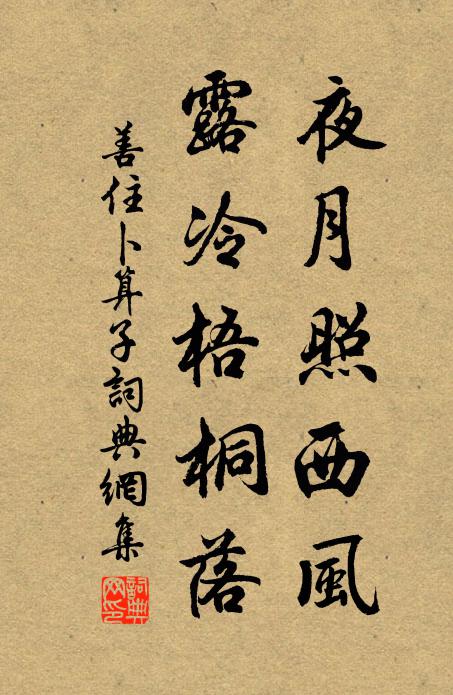 夜月照西風
露冷梧桐落
善住卜算子詞典網集
詞典網印